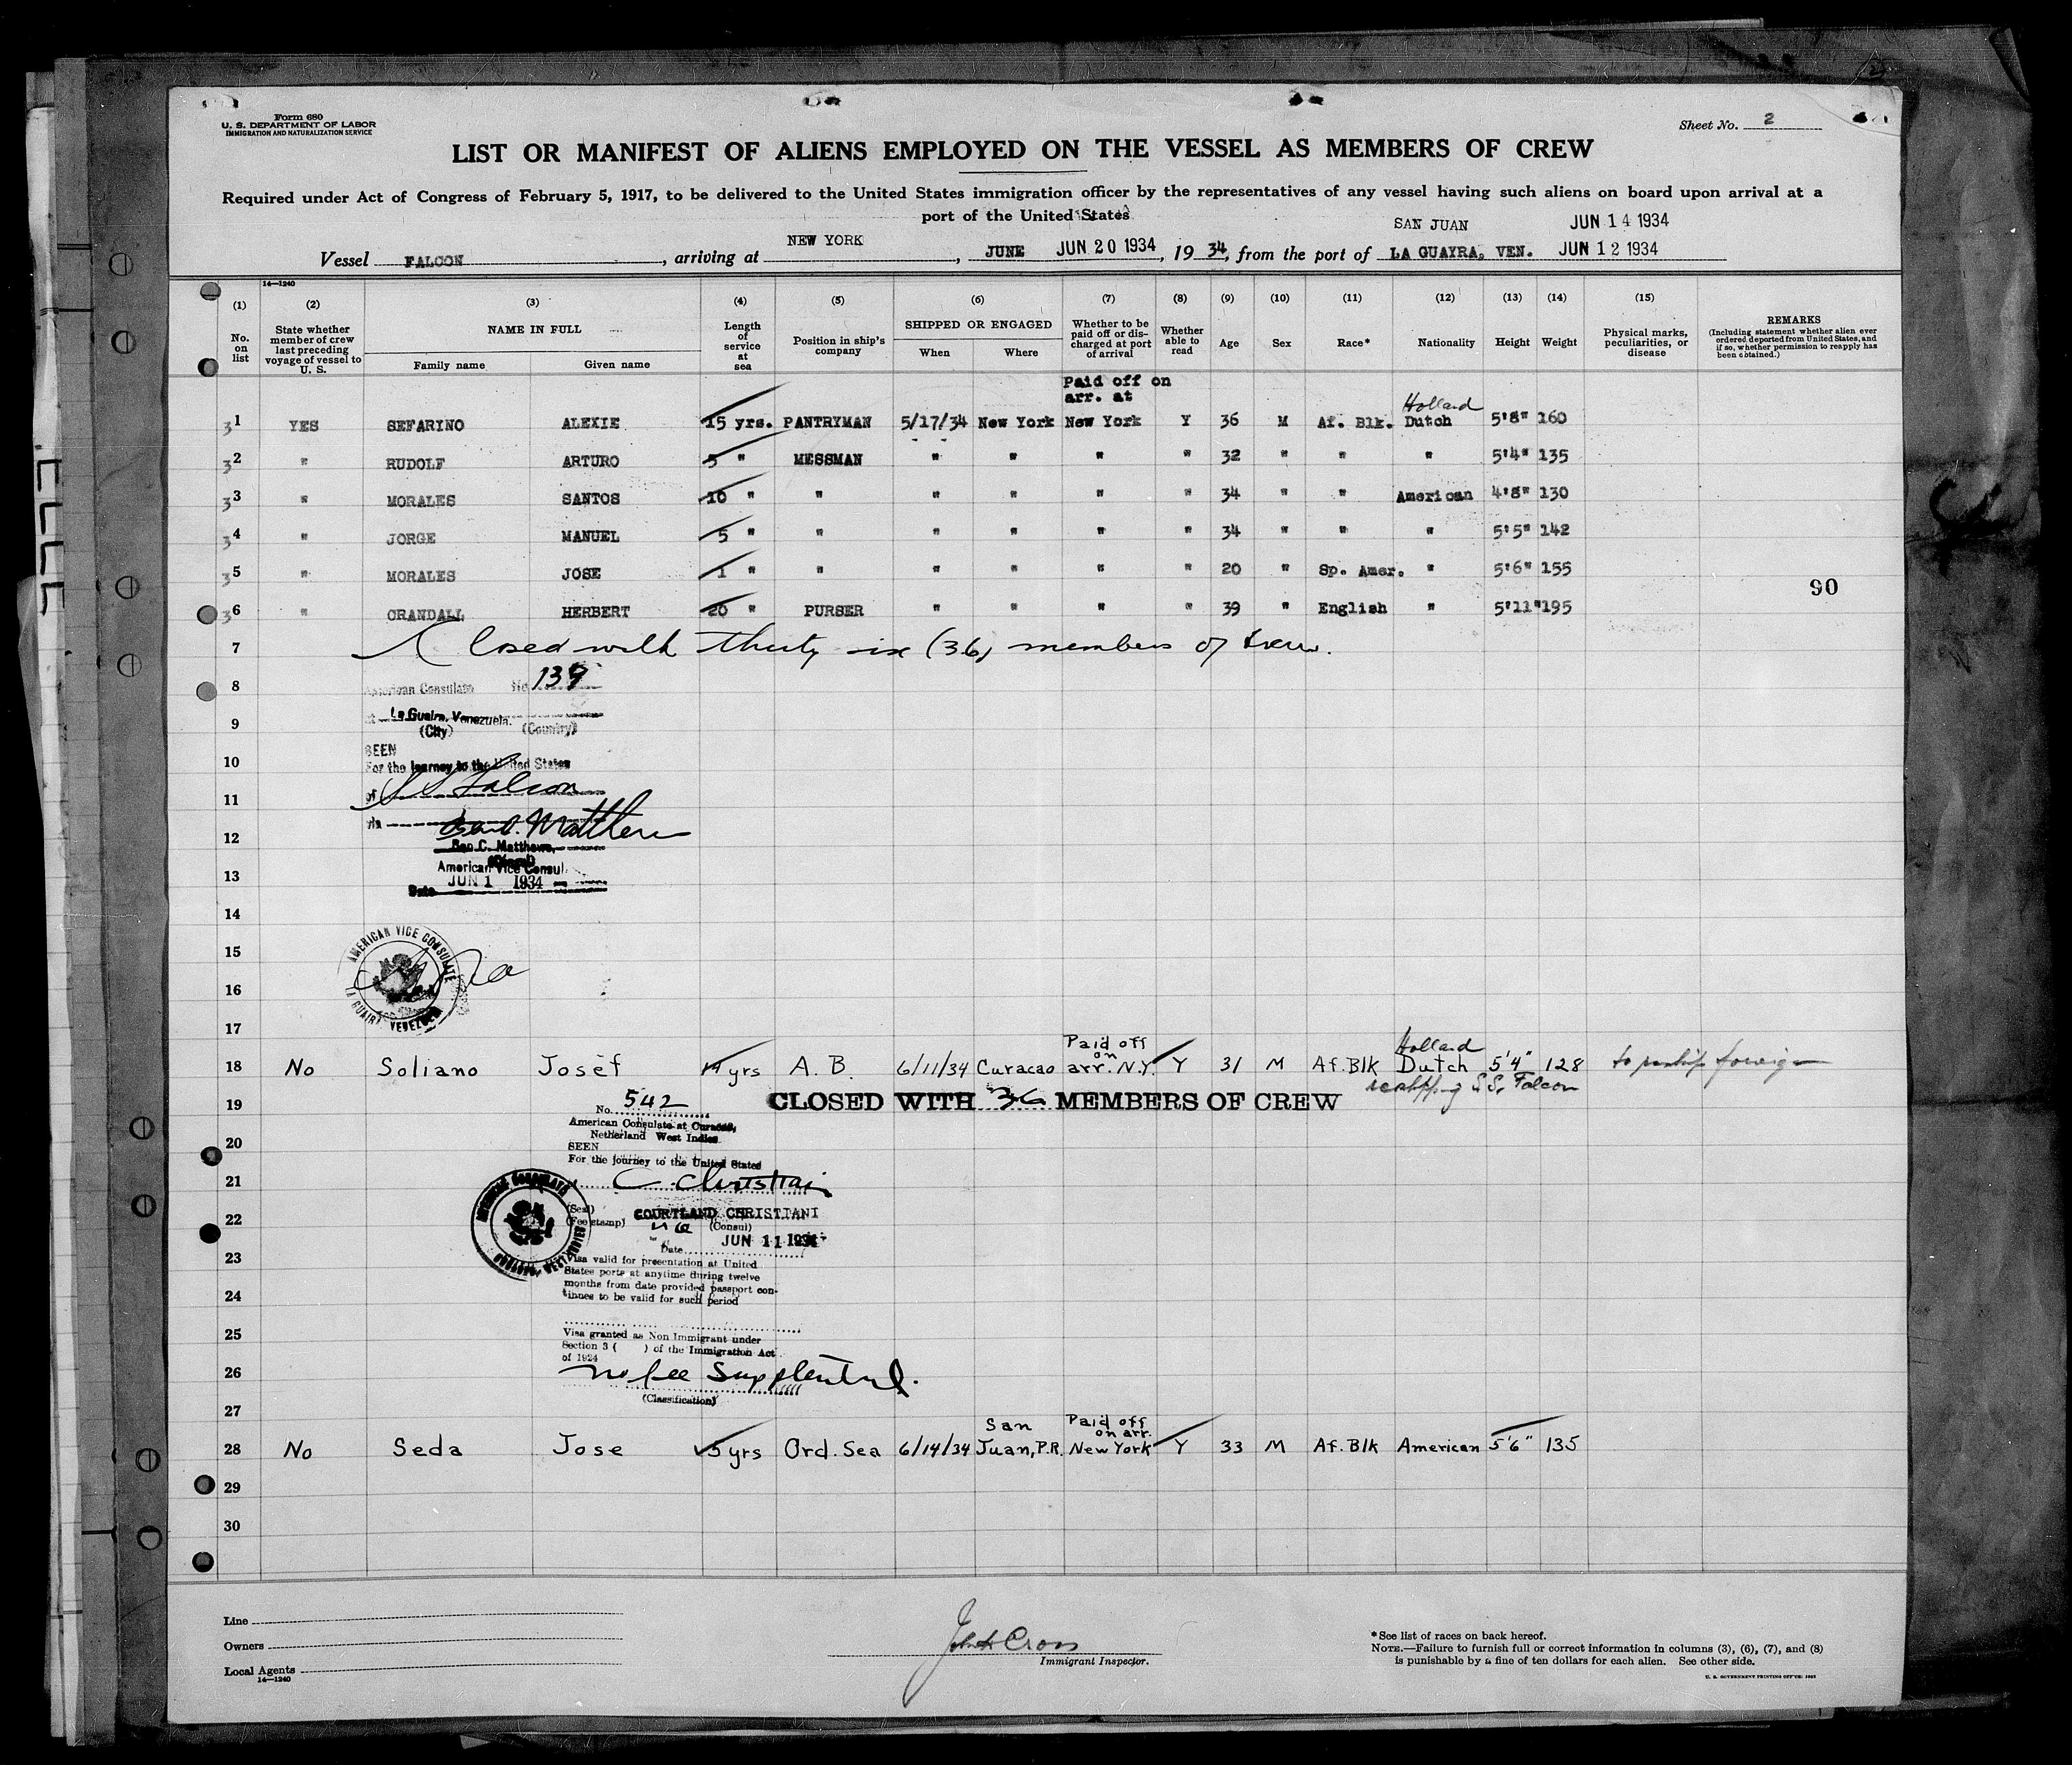 Form 680
U. S. DEPARTMENT OF LABOR
IMMIGRATION AND NATURALIZATION SERVICE
Sheet No. 2
LIST OR MANIFEST OF ALIENS EMPLOYED ON THE VESSEL AS MEMBERS OF CREW
Required under Act of Congress of February 5, 1917, to be delivered to the United States immigration officer by the representatives of any vessel having such aliens on board upon arrival at a
port of the United States
SAN JUAN JUN 14 1934
Vessel FALCON, arriving at NEW YORK, JUNE JUN 20 1934, 1934, from the port of LA GUAYRA, VEN. JUN 12 1934
14—1240
(1) No. on list
(2) State whether member of crew last preceding voyage of vessel to U. S.
(3) NAME IN FULL
Family name Given name
(4) Length of service at sea
(5) Position in ship's company
(6) SHIPPED OR ENGAGED
When Where
(7) Whether to be paid off or discharged at port of arrival
(8) Whether able to read
(9) Age
(10) Sex
(11) Race*
(12) Nationality
(13) Height
(14) Weight
(15) Physical marks, peculiarities, or disease
REMARKS
(Including statement whether alien ever ordered deported from United States, and if so, whether permission to reapply has been obtained.)
Paid off on
arr. at
Holland
31 YES SEFARINO ALEXIE 15 yrs. PANTRYMAN 5/17/34 New York New York Y 36 M Af. Blk. Dutch 5'8" 160
32 " RUDOLF ARTURO 5 " MESSMAN " " " " 32 " " " 5'4" 135
33 " MORALES SANTOS 10 " " " " " " 34 " " American 4'8" 130
34 " JORGE MANUEL 5 " " " " " " 34 " " " 5'5" 142
35 " MORALES JOSE 1 " " " " " " 20 " Sp. Amer. " 5'6" 155
90
36 " CRANDALL HERBERT 20 " PURSER " " " " 39 " English " 5'11" 195
7 Closed with thirty six (36) members of crew.
8 American Consulate No. 139
9 at La Guaira, Venezuela.
(City) (Country)
10 SEEN
For the journey to the United States
11 of SS Falcon
12 via Ben C. Matthews
Ben C. Matthews,
13 American Vice Consul
Date JUN 1 1934
14
15 AMERICAN VICE CONSULATE
16 LA GUAIRA VENEZUELA
17
Paid off
on
Holland
18 No Soliano Josef yrs A. B. 6/11/34 Curacao arr. N.Y. Y 31 M Af. Blk Dutch 5'4" 128 to foreign
reshipping S.S. Falcon
19 CLOSED WITH 36 MEMBERS OF CREW
No. 542
American Consulate at Curacao,
Netherland West Indies
20 SEEN
For the journey to the United States
21 C. Christiani
(Seal)
(Fee stamp)
22 COURTLAND CHRISTIANI
(Consul)
Date JUN 11 1934
23 Visa valid for presentation at United
States ports at anytime during twelve
months from date provided passport con-
24 tinues to be valid for such period
25 Visa granted as Non Immigrant under
Section 3 ( ) of the Immigration Act
of 1924
26 no fee
(Classification)
27
San Paid off
on arr.
28 No Seda Jose 5 yrs Ord. Sea 6/14/34 Juan, P.R. New York Y 33 M Af. Blk American 5'6" 135
29
30
Line
Owners
Local Agents
14—1240
Cross
Immigrant Inspector.
*See list of races on back hereof.
NOTE.—Failure to furnish full or correct information in columns (3), (6), (7), and (8)
is punishable by a fine of ten dollars for each alien. See other side.